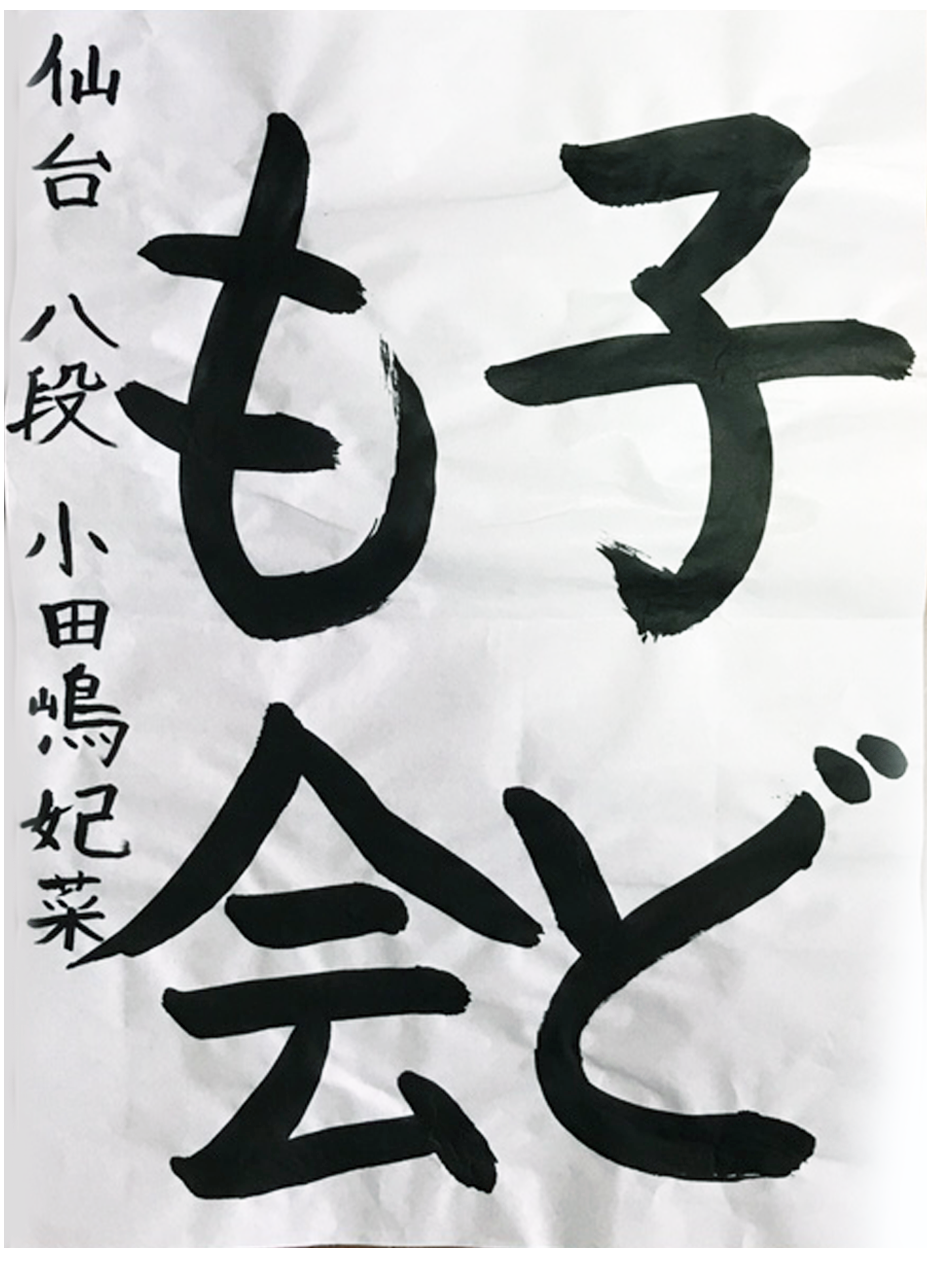 子ど
も会
仙台 八段 小田嶋妃菜